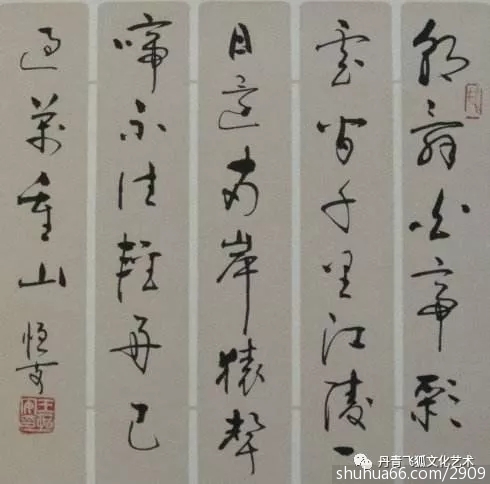 朝辞白帝彩
雲间千里江陵一
日還两岸猿聲
啼不住輕舟已
过萬重山 恒
丹青飞狐文化艺术
shuhua66.com/2909